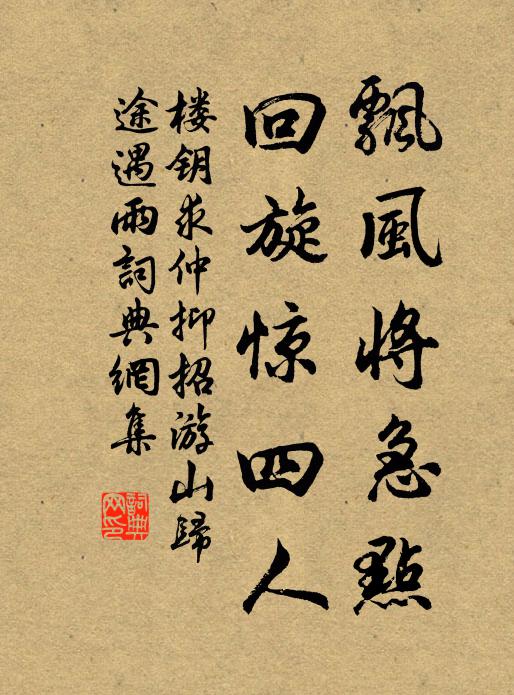 飄風將急點
回旋惊四人
楼钥求仲抑招游山歸
途遇雨詞典網集
詞典
网印